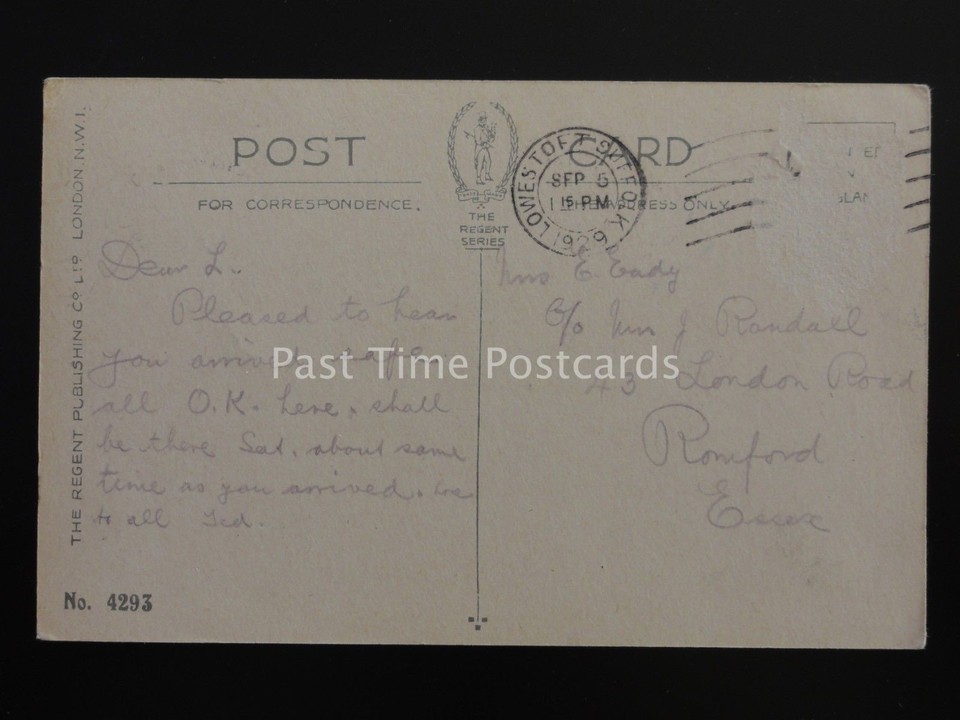 POST CARD
FOR CORRESPONDENCE.
THE ADDRESS ONLY
THE
REGENT
SERIES
LOWESTOFT SUFFOLK
SEP 5
1 15 PM
THE REGENT PUBLISHING CO LTD LONDON. N.W.1.
Dear L.
Pleased to hear
you arrived safe
all O.K. here, shall
be there Sat. about same
time as you arrived.
to all Ted.
Mrs E. Eady
C/o Mrs J Randall
43 London Road
Romford
Essex
Past Time Postcards
No. 4293